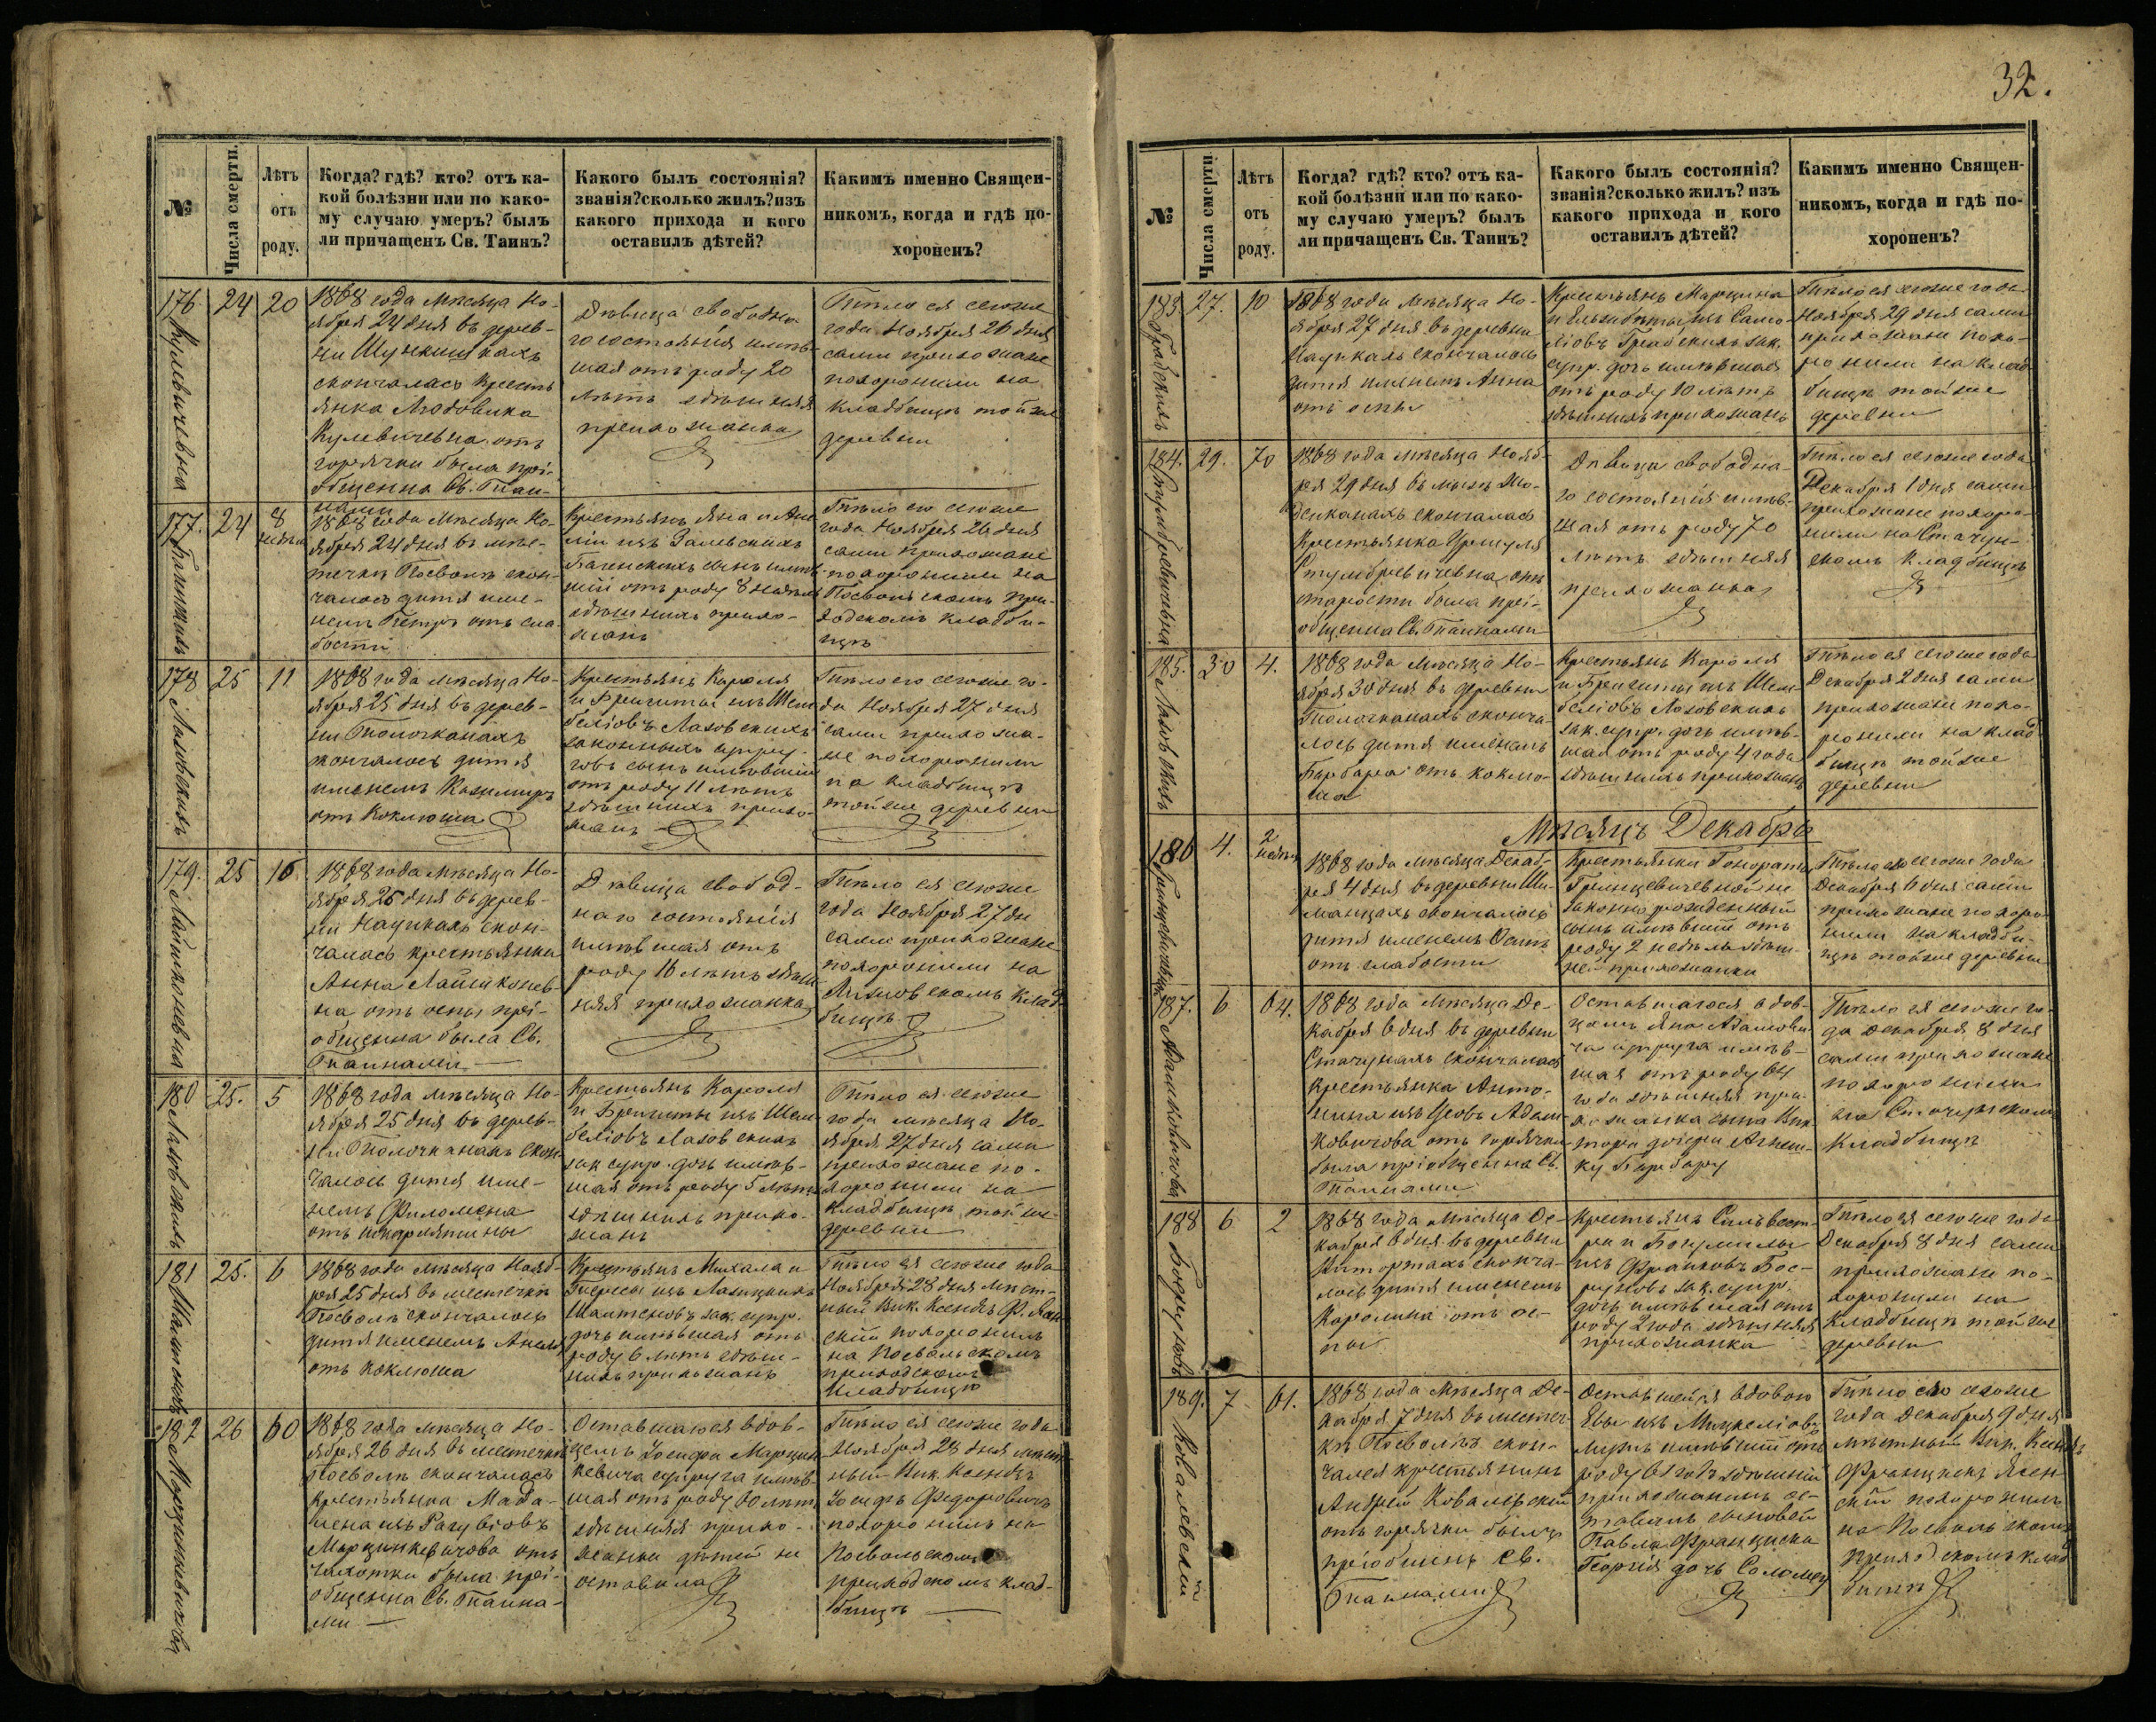 32.
№
Числа смерти.
Лѣтъ
отъ
роду.
Когда? гдѣ? кто? отъ ка-
кой болѣзни или по како-
му случаю умеръ? былъ
ли причащенъ Св. Таинъ?
Какого былъ состоянія?
званія? сколько жилъ? изъ
какого прихода и кого
оставилъ дѣтей?
Какимъ именно Священ-
никомъ, когда и гдѣ по-
хороненъ?
176
24
20
1868 года мѣсяца Но-
ября 24 дня въ дерев-
ни
скончалась кресть
янка Людовика
Кулевичевна отъ
горячки была прі-
общенна Св. Таи-
нами
Дѣвица свободна
го состоянія имѣв-
шая отъ роду 20
лѣтъ здѣшняя
прихожанка
Тѣло ея сегоже
года Ноября 26 дня
сами прихожане
похоронили на
кладбищѣ той же
деревни
177.
24
8
недѣли
1868 года мѣсяца Но-
ября 24 дня въ мѣс-
течкѣ Посволѣ скон-
чалось дитя име-
немъ Петръ отъ сла
бости
Крестьянъ Яна и Ане
ліи изъ Залевскихъ
сынъ имѣв
шій отъ роду 8 недѣль
здѣшнихъ прихо-
жанъ
Тѣло его сегоже
года Ноября 26 дня
сами прихожане
похоронили на
Посвольскомъ при-
ходскомъ кладби-
щѣ
178
Лазовскихъ
25
11
1868 года мѣсяца Но-
ября 25 дня въ дерев-
ни Толочканахъ
скончалось дитя
именемъ Казимиръ
отъ коклюша
Крестьянъ Кароля
и Бригиты изъ Шем
беліовъ Лазовскихъ
законныхъ супру-
говъ сынъ имѣвшій
отъ роду 11 лѣтъ
здѣшнихъ прихо-
жанъ
Тѣло его сегоже го-
да Ноября 27 дня
сами прихожа-
не похоронили
на кладбищѣ
тойже деревни
179.
Лайшконевна
25
16.
1868 года мѣсяца Но-
ября 25 дня въ дерев-
ни Нацикахъ скон-
чалась крестьянка
Анна Лайшконев-
на отъ оспы прі-
общенна была Св.
Таинами
Дѣвица свобод-
наго состоянія
имѣвшая отъ
роду 16 лѣтъ здѣш
няя прихожанка
Тѣло ея сегоже
года Ноября 27 дн
сами прихожане
похоронили на
клад
бищѣ
180
Лазовскихъ
25.
5
1868 года мѣсяца Но-
ября 25 дня въ дерев-
ни Толочканахъ скон
чалось дитя име-
немъ Филомена
отъ
Крестьянъ Кароля
и Бригиты изъ Шем
беліовъ Лазовскихъ
зак. супр. дочь имѣв-
шая отъ роду 5 лѣтъ
здѣшнихъ прихо-
жанъ
Тѣло ея сегоже
года мѣсяца Но-
ября 27 дня сами
прихожане по-
хоронили на
кладбищѣ той же
деревни
181
25.
6
1868 года мѣсяца Нояб-
ря 25 дня въ местечкѣ
Посволѣ скончалось
дитя именемъ Анеля
отъ коклюша
Крестьянъ Михала и
Тересы изъ
зак. супр.
дочь имѣвшая отъ
роду 6 лѣтъ здѣш-
нихъ прихожанъ
Тѣло ея сегоже года
Ноября 28 дня мѣст-
ный Вик. Ксендзъ Ф. Ясен
скій похоронилъ
на Посвольскомъ
приходскомъ
кладбищѣ
182
Марцинкевичова
26
60
1868 года мѣсяца Но-
ября 26 дня въ местечкѣ
Посволѣ скончалась
крестьянка Магда-
лена изъ Рагувіовъ
Марцинкевичова отъ
чахотки была прі-
общенна Св. Таина-
ми
Оставшагося вдов-
цемъ Іосифа Марцин
кевича супруга имѣв-
шая отъ роду 60 лѣтъ
здѣшняя прихо-
жанка дѣтей не
оставила
Тѣло ея сегоже года
Ноября 28 дня мѣст-
ный Вик. Ксендзъ
Іосифъ Федоровичъ
похоронилъ на
Посвольскомъ
приходскомъ клад-
бищѣ
№
Числа смерти
Лѣтъ
отъ
роду.
Когда? гдѣ? кто? отъ ка-
кой болѣзни или по како-
му случаю умеръ? былъ
ли причащенъ Св. Таинъ?
Какого былъ состоянія?
званія? сколько жилъ? изъ
какого прихода и кого
оставилъ дѣтей?
Какимъ именно Священ-
никомъ, когда и гдѣ по-
хороненъ?
183
Грабскихъ
27.
10
1868 года мѣсяца Но-
ября 27 дня въ деревни
Нацикахъ скончалось
дитя именемъ Анна
отъ оспы
Крестьянъ Марцина
и Ельжбеты изъ Само-
ліовъ Грабскихъ зак.
супр. дочь имѣвшая
отъ роду 10 лѣтъ
здѣшнихъ прихожанъ
Тѣло ея сегоже года
Ноября 29 дня сами
прихожане похо-
ронили на клад
бищѣ тойже
деревни
184.
29.
70
1868 года мѣсяца Нояб-
ря 29 дня въ
скончалась
крестьянка Уршуля
Стумбревичевна отъ
старости была прі-
общенна Св. Таинами
Дѣвица свободна-
го состоянія имѣв-
шая отъ роду 70
лѣтъ здѣшняя
прихожанка
Тѣло ея сегоже года
Декабря 1 дня сами
прихожане похоро-
нили на Стачун-
скомъ кладбищѣ
185.
Лазовскихъ
30
4.
1868 года мѣсяца Но-
ября 30 дня въ деревни
Толочканахъ сконча-
лось дитя именемъ
Барбара отъ коклю-
ша
Крестьянъ Кароля
и Бригиты изъ Шем-
беліовъ Лазовскихъ
зак. супр. дочь имѣв-
шая отъ роду 4 года
здѣшнихъ прихожанъ
Тѣло ея сегоже года
Декабря 2 дня сами
прихожане похо-
ронили на клад
бищѣ тойже
деревни
Мѣсяцъ Декабрь
186
4.
2
недѣли
1868 года мѣсяца Декаб-
ря 4 дня въ деревни Ши-
манцахъ скончалось
дитя именемъ Осипъ
отъ слабости
Крестьянки Гонораты
Гринцевичевной не
законно рожденный
сынъ имѣвшій отъ
роду 2 недѣль здѣш-
ней прихожанки
Тѣло его сегоже года
Декабря 6 дня сами
прихожане похоро
нили на кладби-
щѣ тойже деревни
187.
Адамковичова
6
64.
1868 года мѣсяца Де-
кабря 6 дня въ деревни
Стачунахъ скончалась
крестьянка Анто-
нина изъ Адам-
ковичова отъ горячки
была пріобщенна Св.
Таинами
Оставшагося вдов-
цемъ Яна Адамкови
ча супруга имѣв-
шая отъ роду 64
года здѣшняя при-
хожанка сына Вик
тора дочери Агнеш-
ку Барбару
Тѣло ея сегоже го-
да Декабря 8 дня
сами прихожане
похоронили
на Стачунскомъ
кладбищѣ
188
6
2
1868 года мѣсяца Де-
кабря 6 дня въ деревни
сконча-
лось дитя именемъ
Каролина отъ ос-
пы
Крестьянъ Сильвест-
ра и Богумилы
изъ Франковъ Бос-
руновъ зак. супр.
дочь имѣвшая отъ
роду 2 года здѣшняя
прихожанка
Тѣло ея сегоже года
Декабря 8 дня сами
прихожане по-
хоронили на
кладбищѣ той же
деревни
189.
Ковалевскій
7
61.
1868 года мѣсяца Де-
кабря 7 дня въ местеч-
кѣ Посволѣ скон-
чался крестьянинъ
Андрей Ковалевскій
отъ горячки былъ
пріобщенъ Св.
Таинами
Оставшейся вдовою
Евы изъ Мицкеліовъ
мужъ имѣвшій отъ
роду 61 годъ здѣшній
прихожанинъ ос-
тавилъ сыновей
Павла Франциска
Георгія дочь Саломею
Тѣло его сегоже
года Декабря 9 дня
мѣстный Вик. Ксендзъ
Францискъ Ясен-
скій похоронилъ
на Посвольскомъ
приходскомъ клад
бищѣ